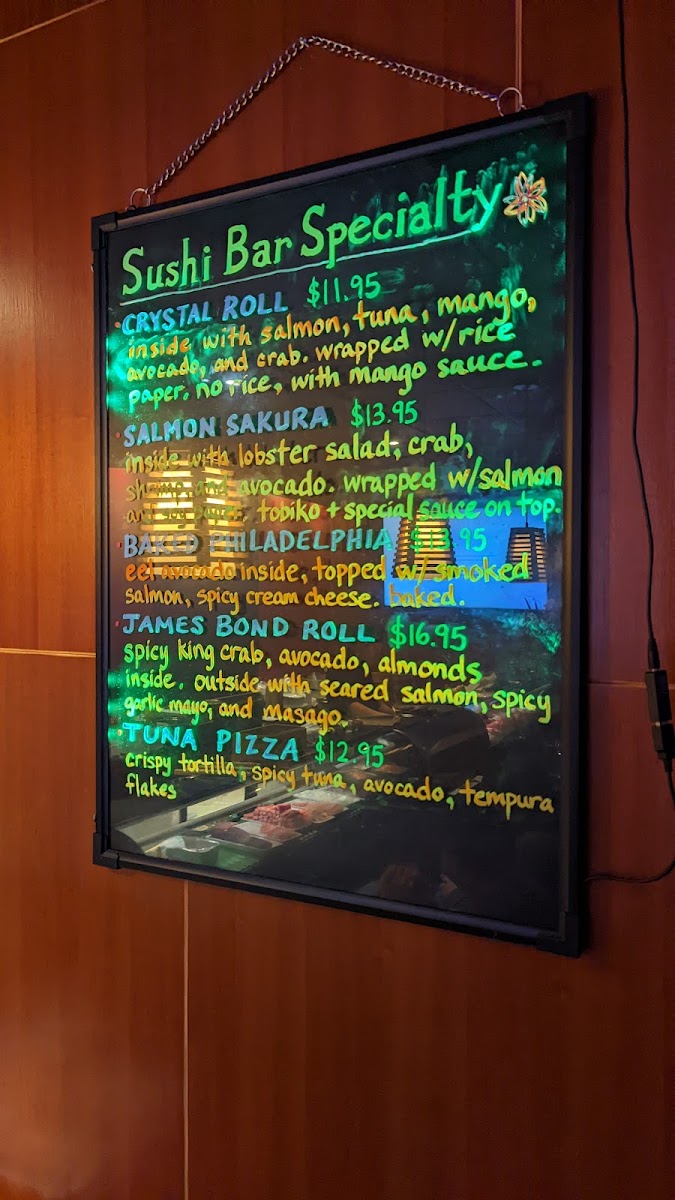 Sushi Bar Specialty
CRYSTAL ROLL $11.95
inside with salmon, tuna, mango,
avocado, and crab. wrapped w/rice
paper. no rice, with mango sauce.
SALMON SAKURA $13.95
inside with lobster salad, crab,
shrimp, and avocado. wrapped w/salmon
and soy paper, tobiko + special sauce on top.
BAKED PHILADELPHIA $13.95
eel avocado inside, topped w/ smoked
salmon, spicy cream cheese. baked.
JAMES BOND ROLL $16.95
spicy king crab, avocado, almonds
inside. outside with seared salmon, spicy
garlic mayo, and masago.
TUNA PIZZA $12.95
crispy tortilla, spicy tuna, avocado, tempura
flakes